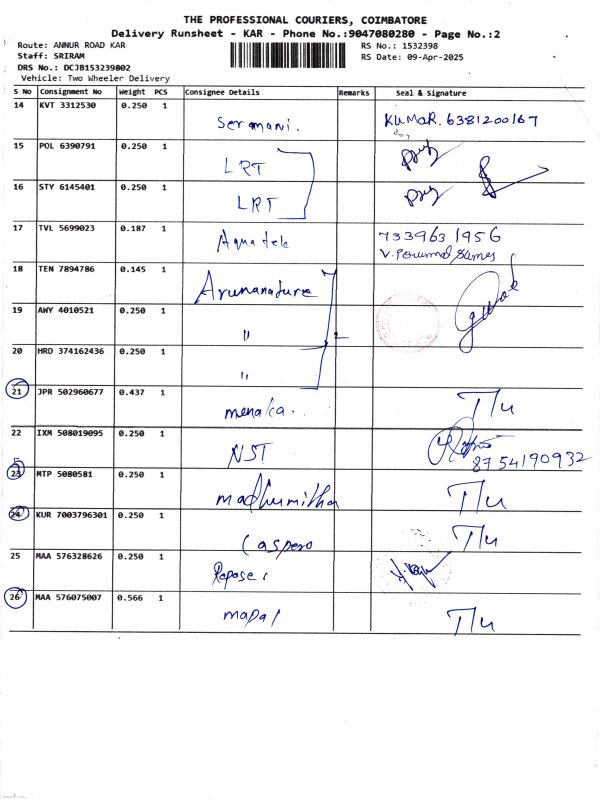 THE PROFESSIONAL COURIERS, COIMBATORE
Delivery Runsheet - KAR - Phone No.:9047080280 - Page No.:2
Route: ANNUR ROAD KAR
RS No.: 1532398
Staff: SRIRAM
RS Date: 09-Apr-2025
DRS No.: DCJB153239802
Vehicle: Two Wheeler Delivery
S No Consignment No Weight PCS Consignee Details Remarks Seal & Signature
14 KVT 3312530 0.250 1 KUMAR. 6381200167
15 POL 6390791 0.250 1 LRT
16 STY 6145401 0.250 1 LRT
17 TVL 5699023 0.187 1 Aquatek 7339631956
18 TEN 7894786 0.145 1
19 AWY 4010521 0.250 1 "
20 HRD 374162436 0.250 1 "
21 JPR 502960677 0.437 1 menaka.. T/u
22 IXM 508019095 0.250 1 NST 8754190932
23 MTP 5080581 0.250 1 madhumitha T/u
24 KUR 7003796301 0.250 1 Caspero T/u
25 MAA 576328626 0.250 1
26 MAA 576075007 0.566 1 T/u